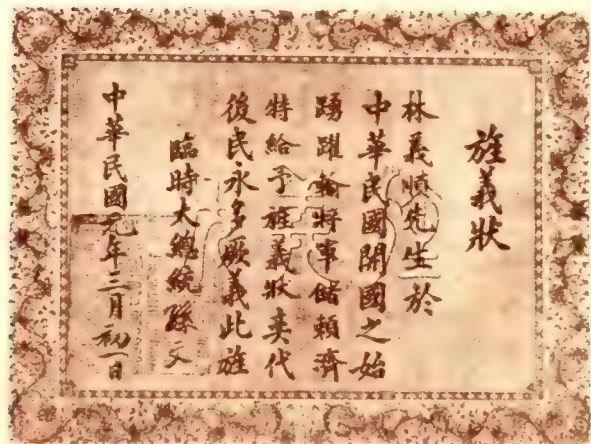 旌義狀
林義順先生於
中華民國開國之始
踴躍輸將軍儲賴濟
特給予旌義狀奕代
後民永多厥義此旌
臨時大總統孫文
中華民國元年三月初一日